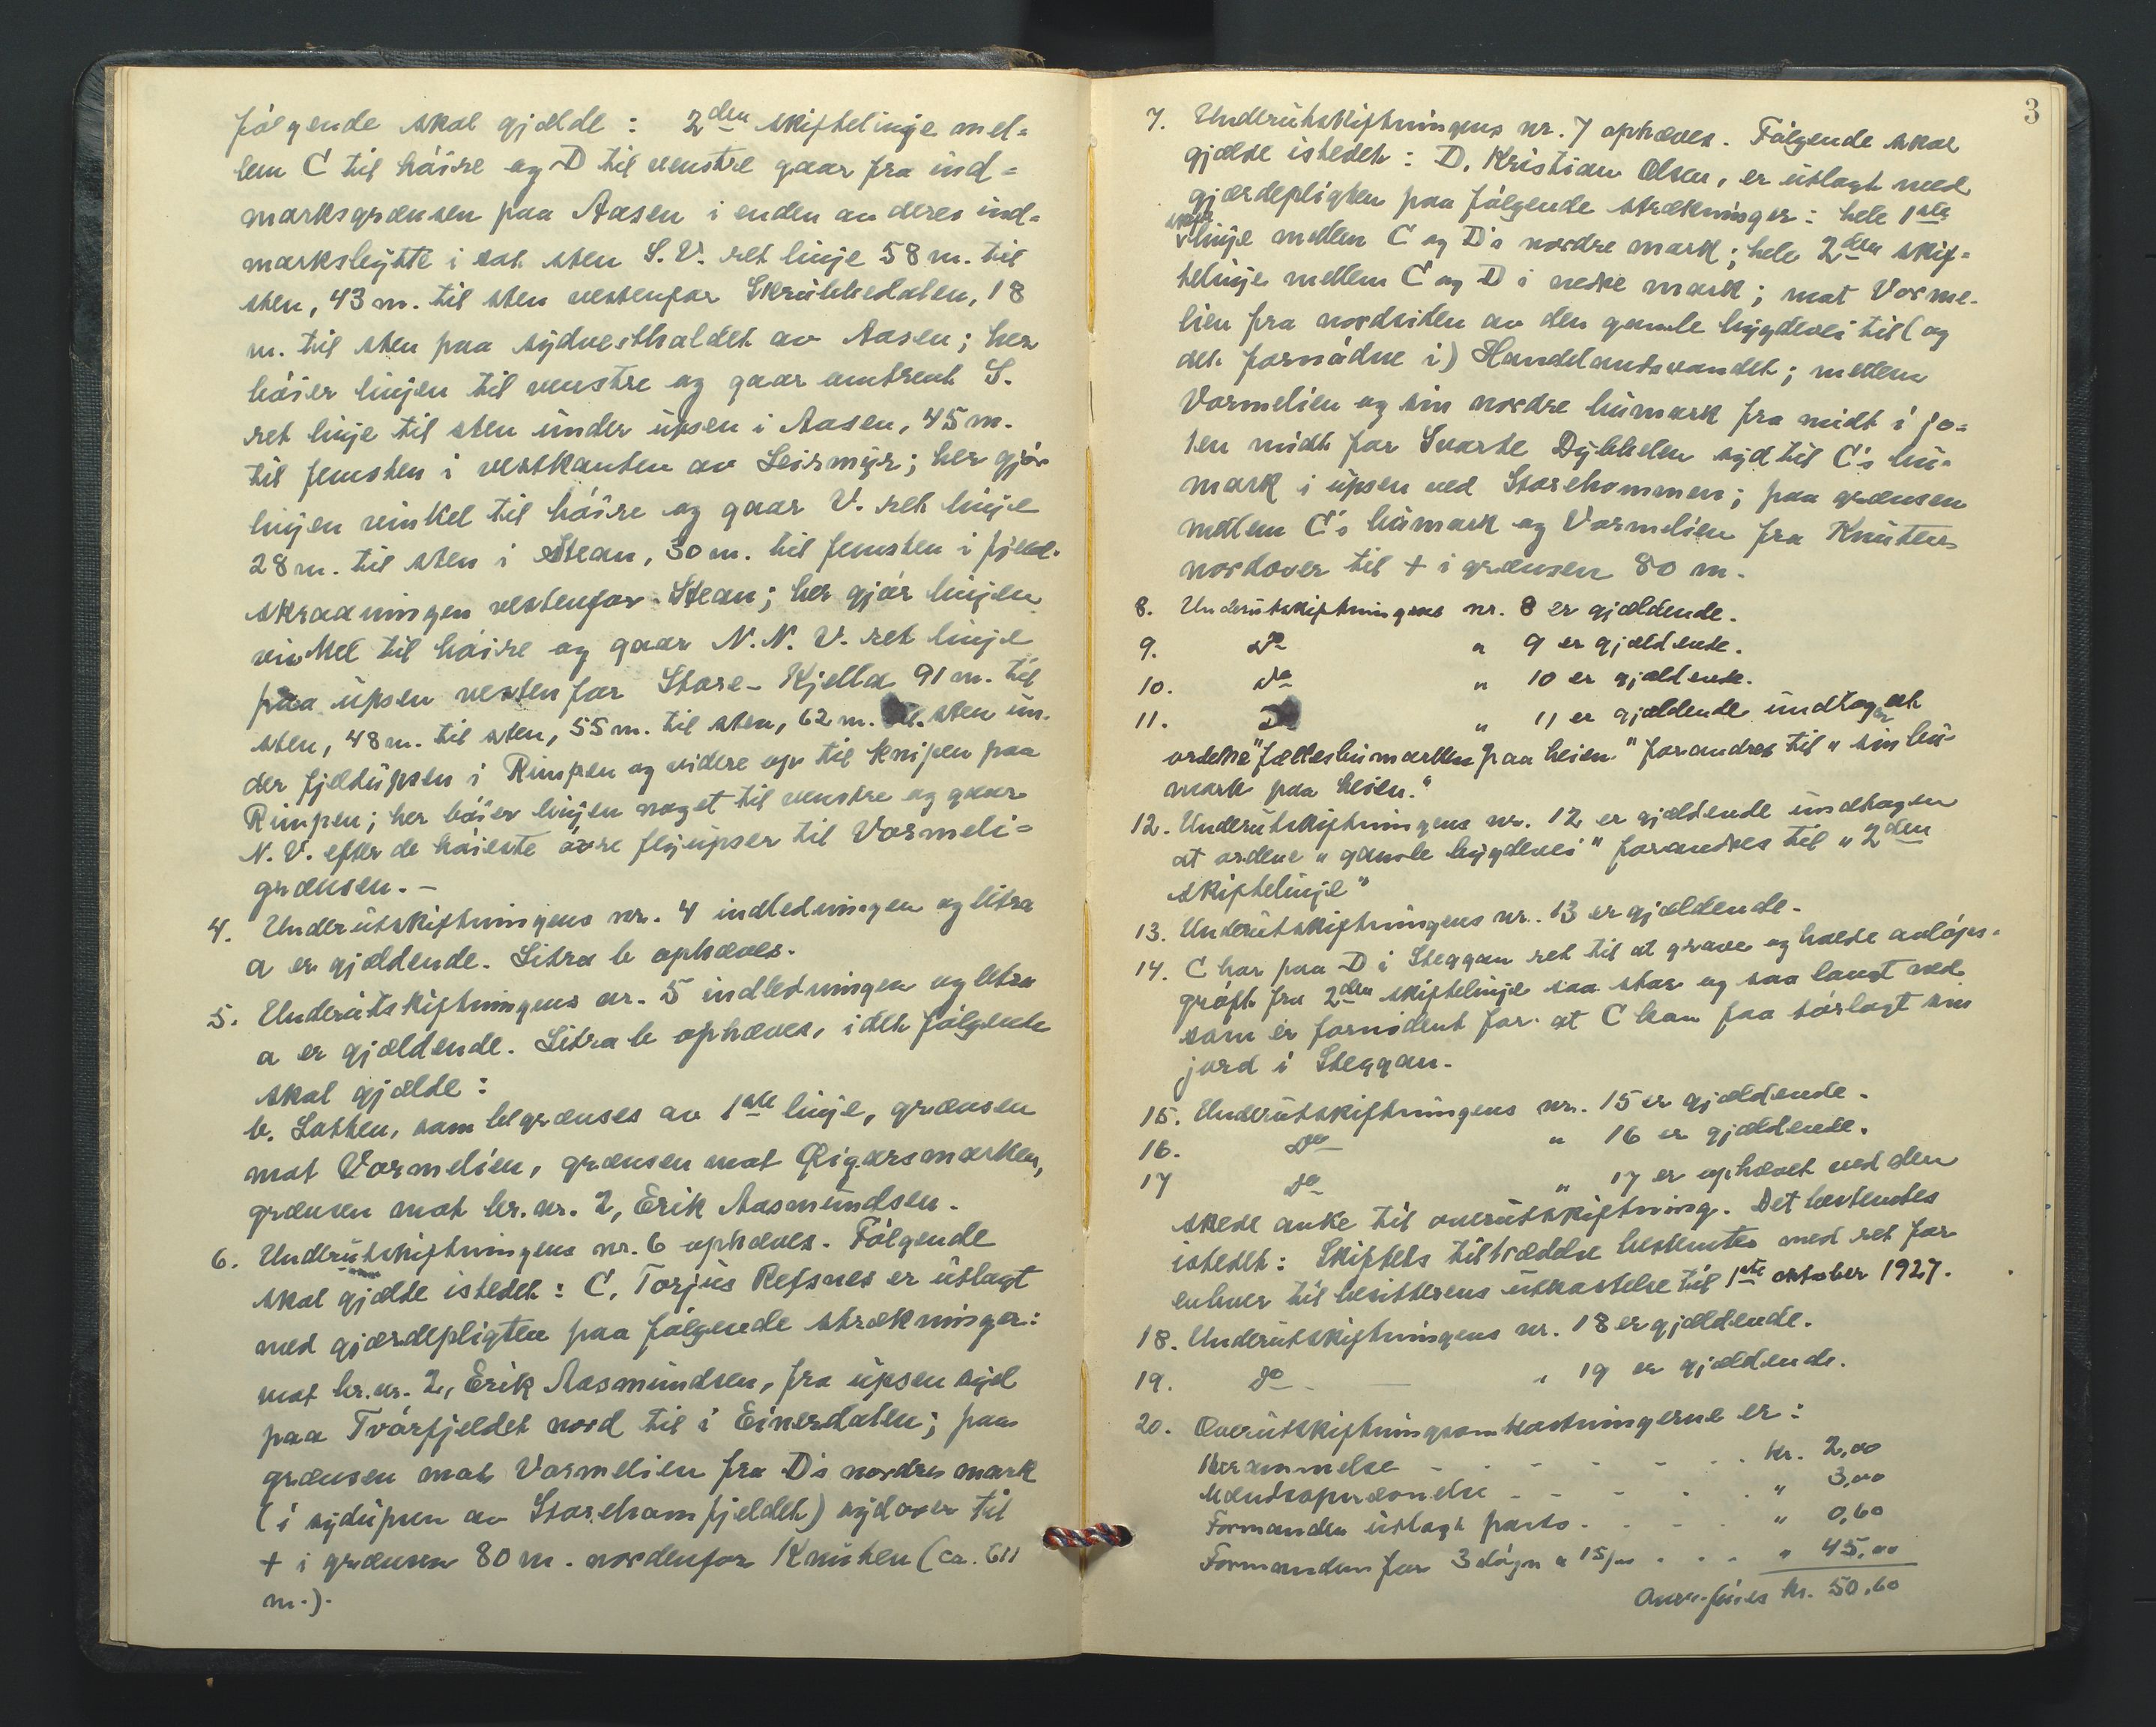 følgende skal gjælde: 2den skiftelinje mel-
lem C til høire og D til venstre gaar fra ind-
marksgrænsen paa Aasen i enden av deres ind-
marksbytte i sat sten S.V. ret linje 58 m. til
sten, 43 m. til sten vestenfor Skrubbedalen, 18
m. til sten paa sydvesthaldet av Aasen; her
bøier linjen til venstre og gaar omtrent S.
ret linje til sten under upsen i Aasen, 45 m.
til jemsten i vestkanten av Leirmyr; her gjør
linjen vinkel til høire og gaar V. ret linje
28 m. til sten i Stean, 30 m. til jemsten i fjeld-
skraaningen vestenfor Stean; her gjør linjen
vinkel til høire og gaar N.N.V. ret linje
paa upsen vestenfor Store-Kjella 91 m. til
sten, 48 m. til sten, 55 m. til sten, 62 m. til sten un-
der fjeldupsen i Rimpen og videre op til knipen paa
Rimpen; her bøier linjen noget til venstre og gaar
N.V. efter de høieste øvre flyupser til Vormeli-
grænsen. -
4. Underutskiftningens nr. 4 indledningen og litra
a er gjældende. Litra b ophæves.
5. Underutskiftningens nr. 5 indledningen og litra
a er gjældende. Litra b ophæves, idet følgende
skal gjælde:
b. Lotten, som begrænses av 1ste linje, grænsen
mot Vormelien, grænsen mot Qigarsmarken,
grænsen mot br.nr. 2, Erik Aasmundsen.
6. Underutskiftningens nr. 6 ophæves. Følgende
skal gjælde istedet: C, Torjus Refsnes er utlagt
med gjærdepligten paa følgende strækninger:
mot br.nr. 2, Erik Aasmundsen, fra upsen syd
paa Tvørfjeldet nord til i Einerdalen; paa
grænsen mot Vormelien fra D's nordre mark
(i sydupsen av Storehomfjeldet) sydover til
+ i grænsen 80 m. nordenfor Knuten (ca. 611
m.).
3
7. Underutskiftningens nr. 7 ophæves. Følgende skal
gjælde istedet: D, Kristian Olsen, er utlagt med
gjærdepligten paa følgende strækninger: hele 1ste
skifte
linje mellem C og D's nordre mark; hele 2den skif-
telinje mellem C og D i nedre mark; mot Vorme-
lien fra nordsiden av den gamle bygdevei til (og
det fornødne i) Handelandsvandet; mellem
Vormelien og sin nordre humark fra midt i jo-
ten midt for Svarte Dybhelen syd til C's hu-
mark i upsen ved Storehommen; paa grænsen
mellem C's humark og Vormelien fra Knuten
nordover til + i grænsen 80 m.
8. Underutskiftningens nr. 8 er gjældende.
9. Do " 9 er gjældende.
10. do " 10 er gjældende.
11. D " 11 er gjældende undtagen at
ordene "fælleshumarken paa heien" forandres til "sin hu-
mark paa heien."
12. Underutskiftningens nr. 12 er gjældende undtagen
at ordene "gamle bygdevei" forandres til "2den
skiftelinje"
13. Underutskiftningens nr. 13 er gjældende.
14. C har paa D i Steggan ret til at grave og holde avløps-
grøft fra 2den skiftelinje saa stor og saa langt ned
som er fornødent for at C kan faa tørlagt sin
jord i Steggan.
15. Underutskiftningens nr. 15 er gjældende.
16. Do " 16 er gjældende.
17 do " 17 er ophævet ved den
skede anke til overutskiftning. Det bestemtes
istedet: Skiftets tiltrædelse bestemtes med ret for
enhver til besitterens utkastelse til 1ste oktober 1927.
18. Underutskiftningens nr. 18 er gjældende.
19. do - " 19 er gjældende.
20. Overutskiftningsomkostningerne er:
Berammelse - - - - - kr. 2,00
Mændsopnævnelse - - - - " 3,00
Formanden utlagt porto - - - - " 0,60
Formanden for 3 døgn a 15/00 - - - " 45,00
Overføres kr. 50,60